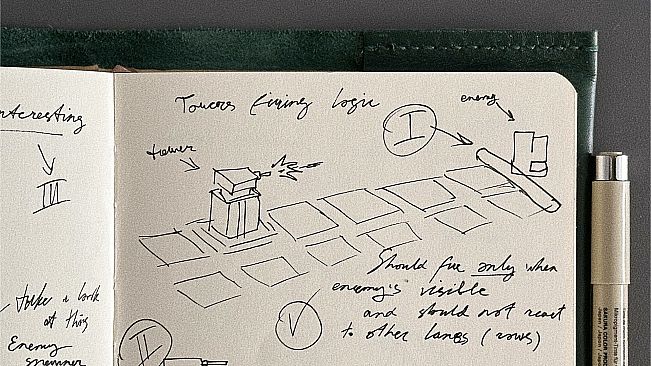 nteresting
III
take a look
at this
Enemy
spawner
Towers firing Logic
tower
I
enemy
Should fire only when
enemy's visible
and should not react
to other lanes (rows)
V
II
SAKURA COLOR PROD